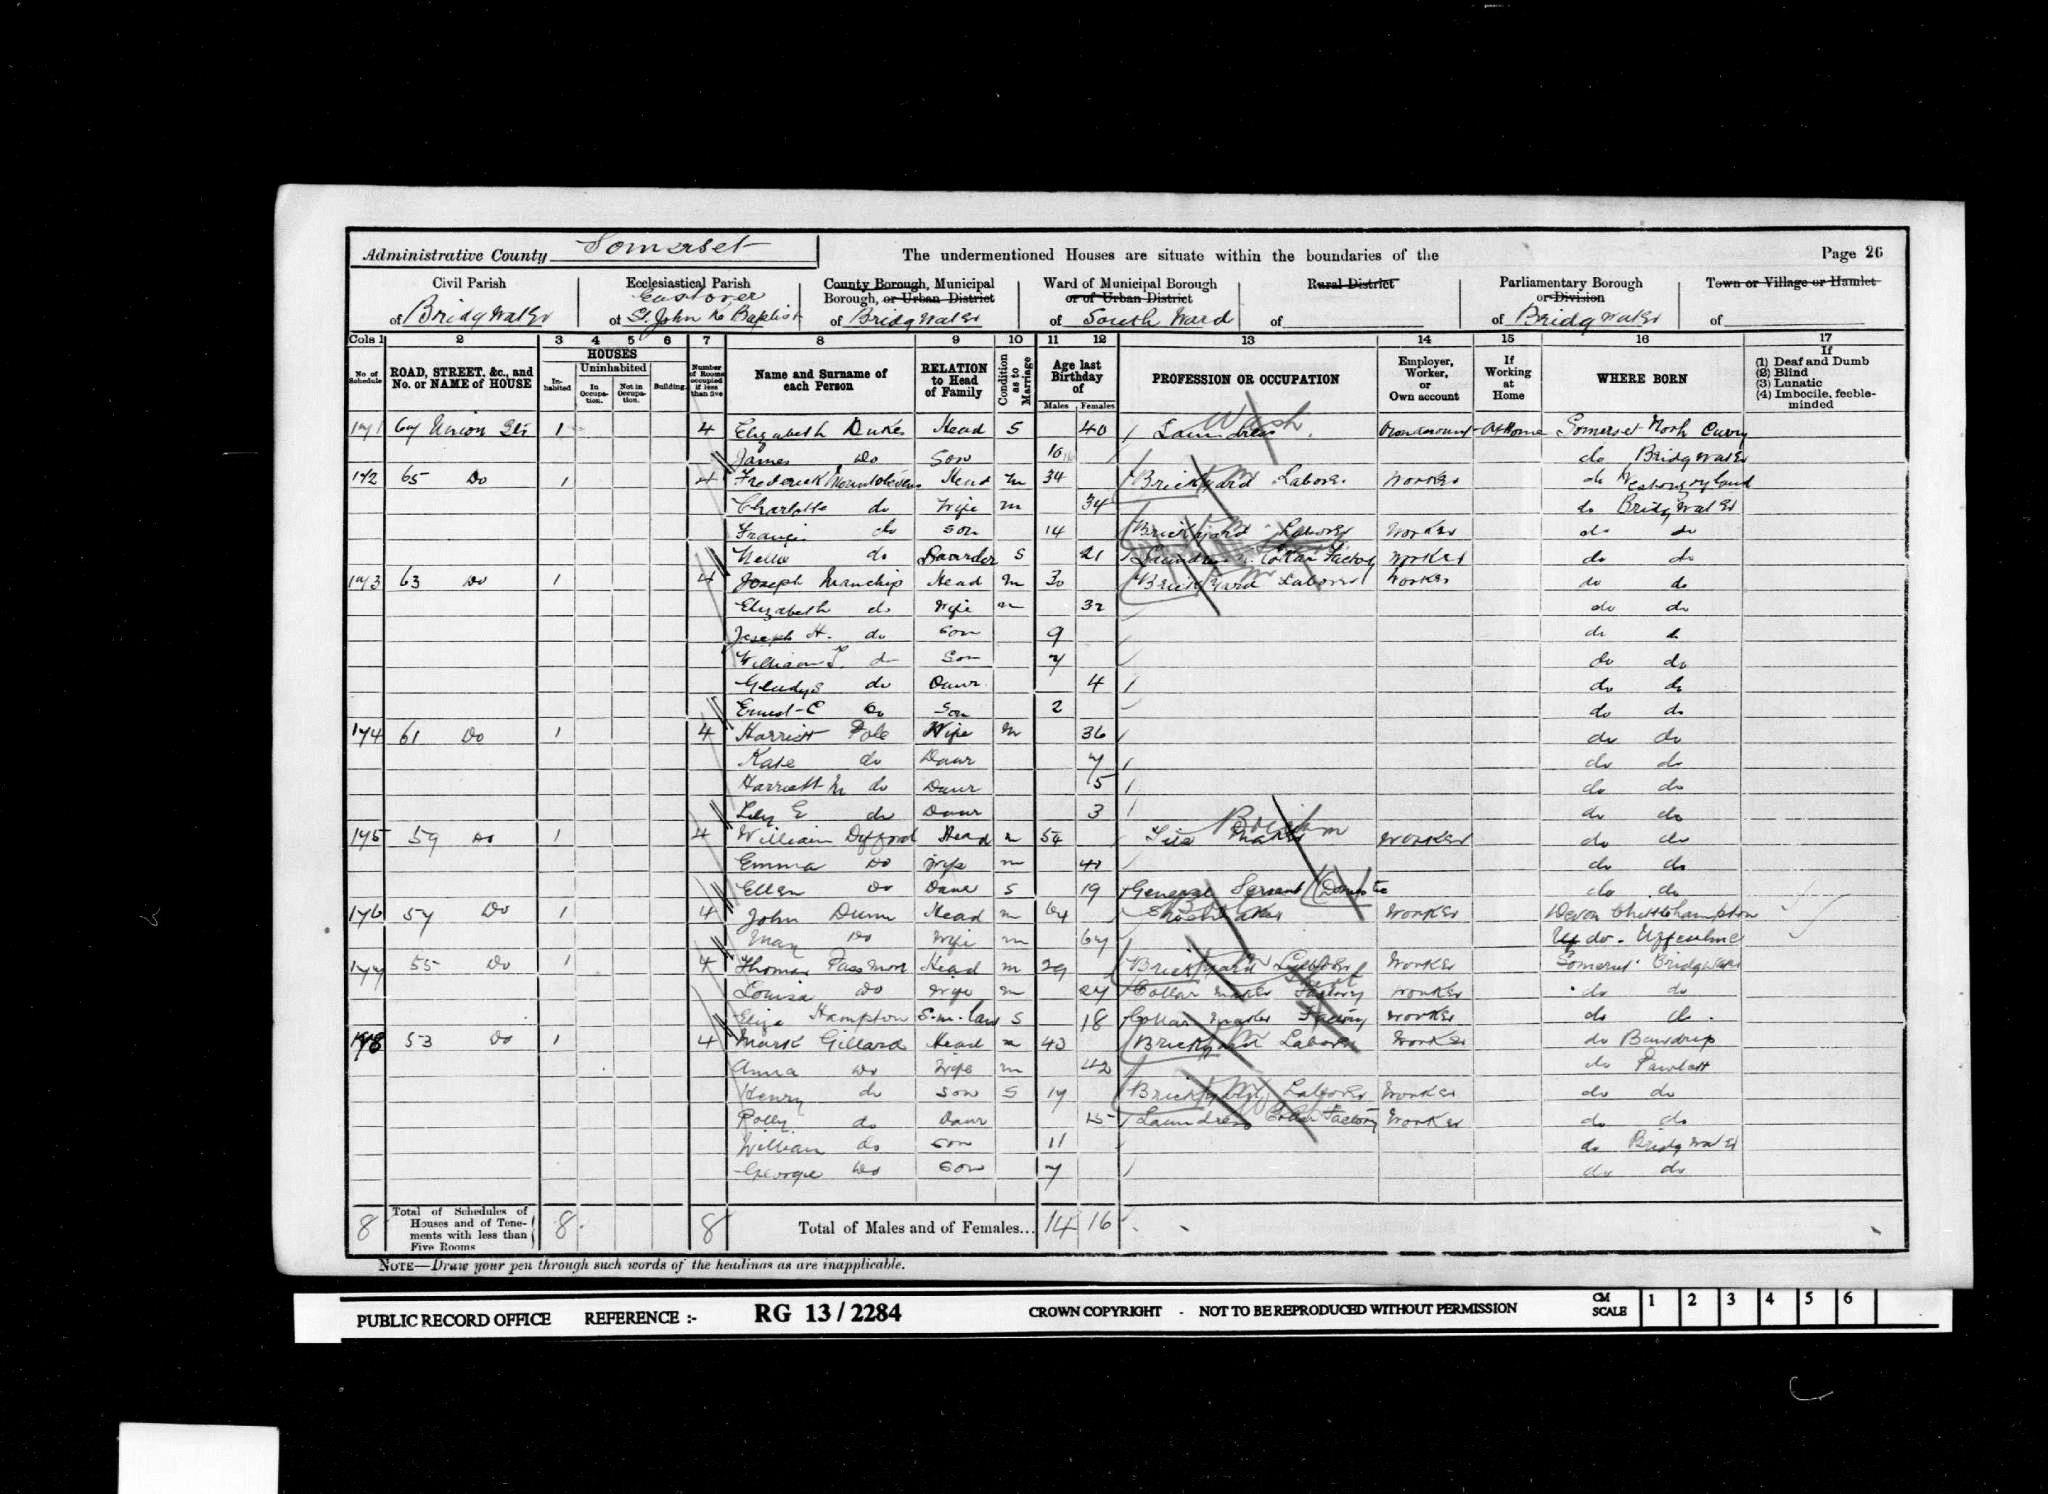 Administrative County Somerset The undermentioned Houses are situate within the boundaries of the Page 26
Civil Parish of Bridgwater
Ecclesiastical Parish of Eastover St. John the Baptist
County Borough, Municipal Borough, or Urban District of Bridgwater
Ward of Municipal Borough or of Urban District of South Ward
Rural District of
Parliamentary Borough or Division of Bridgwater
Town or Village or Hamlet of
Cols 1 2 3 4 5 6 7 8 9 10 11 12 13 14 15 16 17
No. of Schedule
ROAD, STREET, &c., and No. or NAME of HOUSE
HOUSES
Inhabited
Uninhabited
In Occupation.
Not in Occupation.
Building.
Number of Rooms occupied if less than five
Name and Surname of each Person
RELATION to Head of Family
Condition as to Marriage
Age last Birthday of
Males Females
PROFESSION OR OCCUPATION
Employer, Worker, or Own account
If Working at Home
WHERE BORN
If
(1) Deaf and Dumb
(2) Blind
(3) Lunatic
(4) Imbecile, feeble-minded
Wash
171 67 Union St 1 4 Elizabeth Dukes Head S 40 Laundress Own account At Home Somerset North Curry
James Do Son 10 do Bridgwater
172 65 Do 1 4 Frederick Head M 34 Brickyard Laborer Worker do
Charlotte do Wife M 34 do Bridgwater
Francis do Son 14 Brickyard Laborer Worker do do
Nellie do Boarder S 21 Laundress Collar Factory Worker do do
173 63 Do 1 4 Joseph Manship Head M 30 Brickyard Laborer Worker do do
Elizabeth do Wife M 32 do do
Joseph H. do Son 9 do do
William do Son 7 do do
Gladys do Daur 4 do do
Ernest C Do Son 2 do do
174 61 Do 1 4 Harriet Pole Wife M 36 do do
Kate do Daur 7 do do
Harriett M do Daur 5 do do
Lily E do Daur 3 do do
Brick m
175 59 Do 1 4 William Dyfford Head M 54 Tile Maker Worker do do
Emma Do Wife M do do
Ellen Do Daur S 19 General Servant (Domestic do do
176 57 Do 1 4 John Dunn Head M 64 Shoemaker Worker Devon Chittlehampton
Mary Do Wife M 67 do. Uffculme
177 55 Do 1 4 Thomas Passmore Head M 29 Brickyard Laborer Worker Somerset Bridgwater
Louisa Do Wife M 27 Collar Maker Factory Worker do do
Eliza Hampton S. in. law S 18 Collar Maker Factory Worker do do
178 53 Do 1 4 Mark Gillard Head M 43 Brickyard Laborer Worker do Bawdrip
Anna Do Wife M 42 do Pawlett
Henry do Son S 17 Brickyard Laborer Worker do do
Polly do Daur 15 Laundress Collar Factory Worker do do
William do Son 11 do Bridgwater
George Do Son 7 do do
8 Total of Schedules of Houses and of Tenements with less than Five Rooms 8 8 Total of Males and of Females... 14 16
NOTE—Draw your pen through such words of the headings as are inapplicable.
PUBLIC RECORD OFFICE REFERENCE :- RG 13/2284 CROWN COPYRIGHT - NOT TO BE REPRODUCED WITHOUT PERMISSION CM SCALE 1 2 3 4 5 6